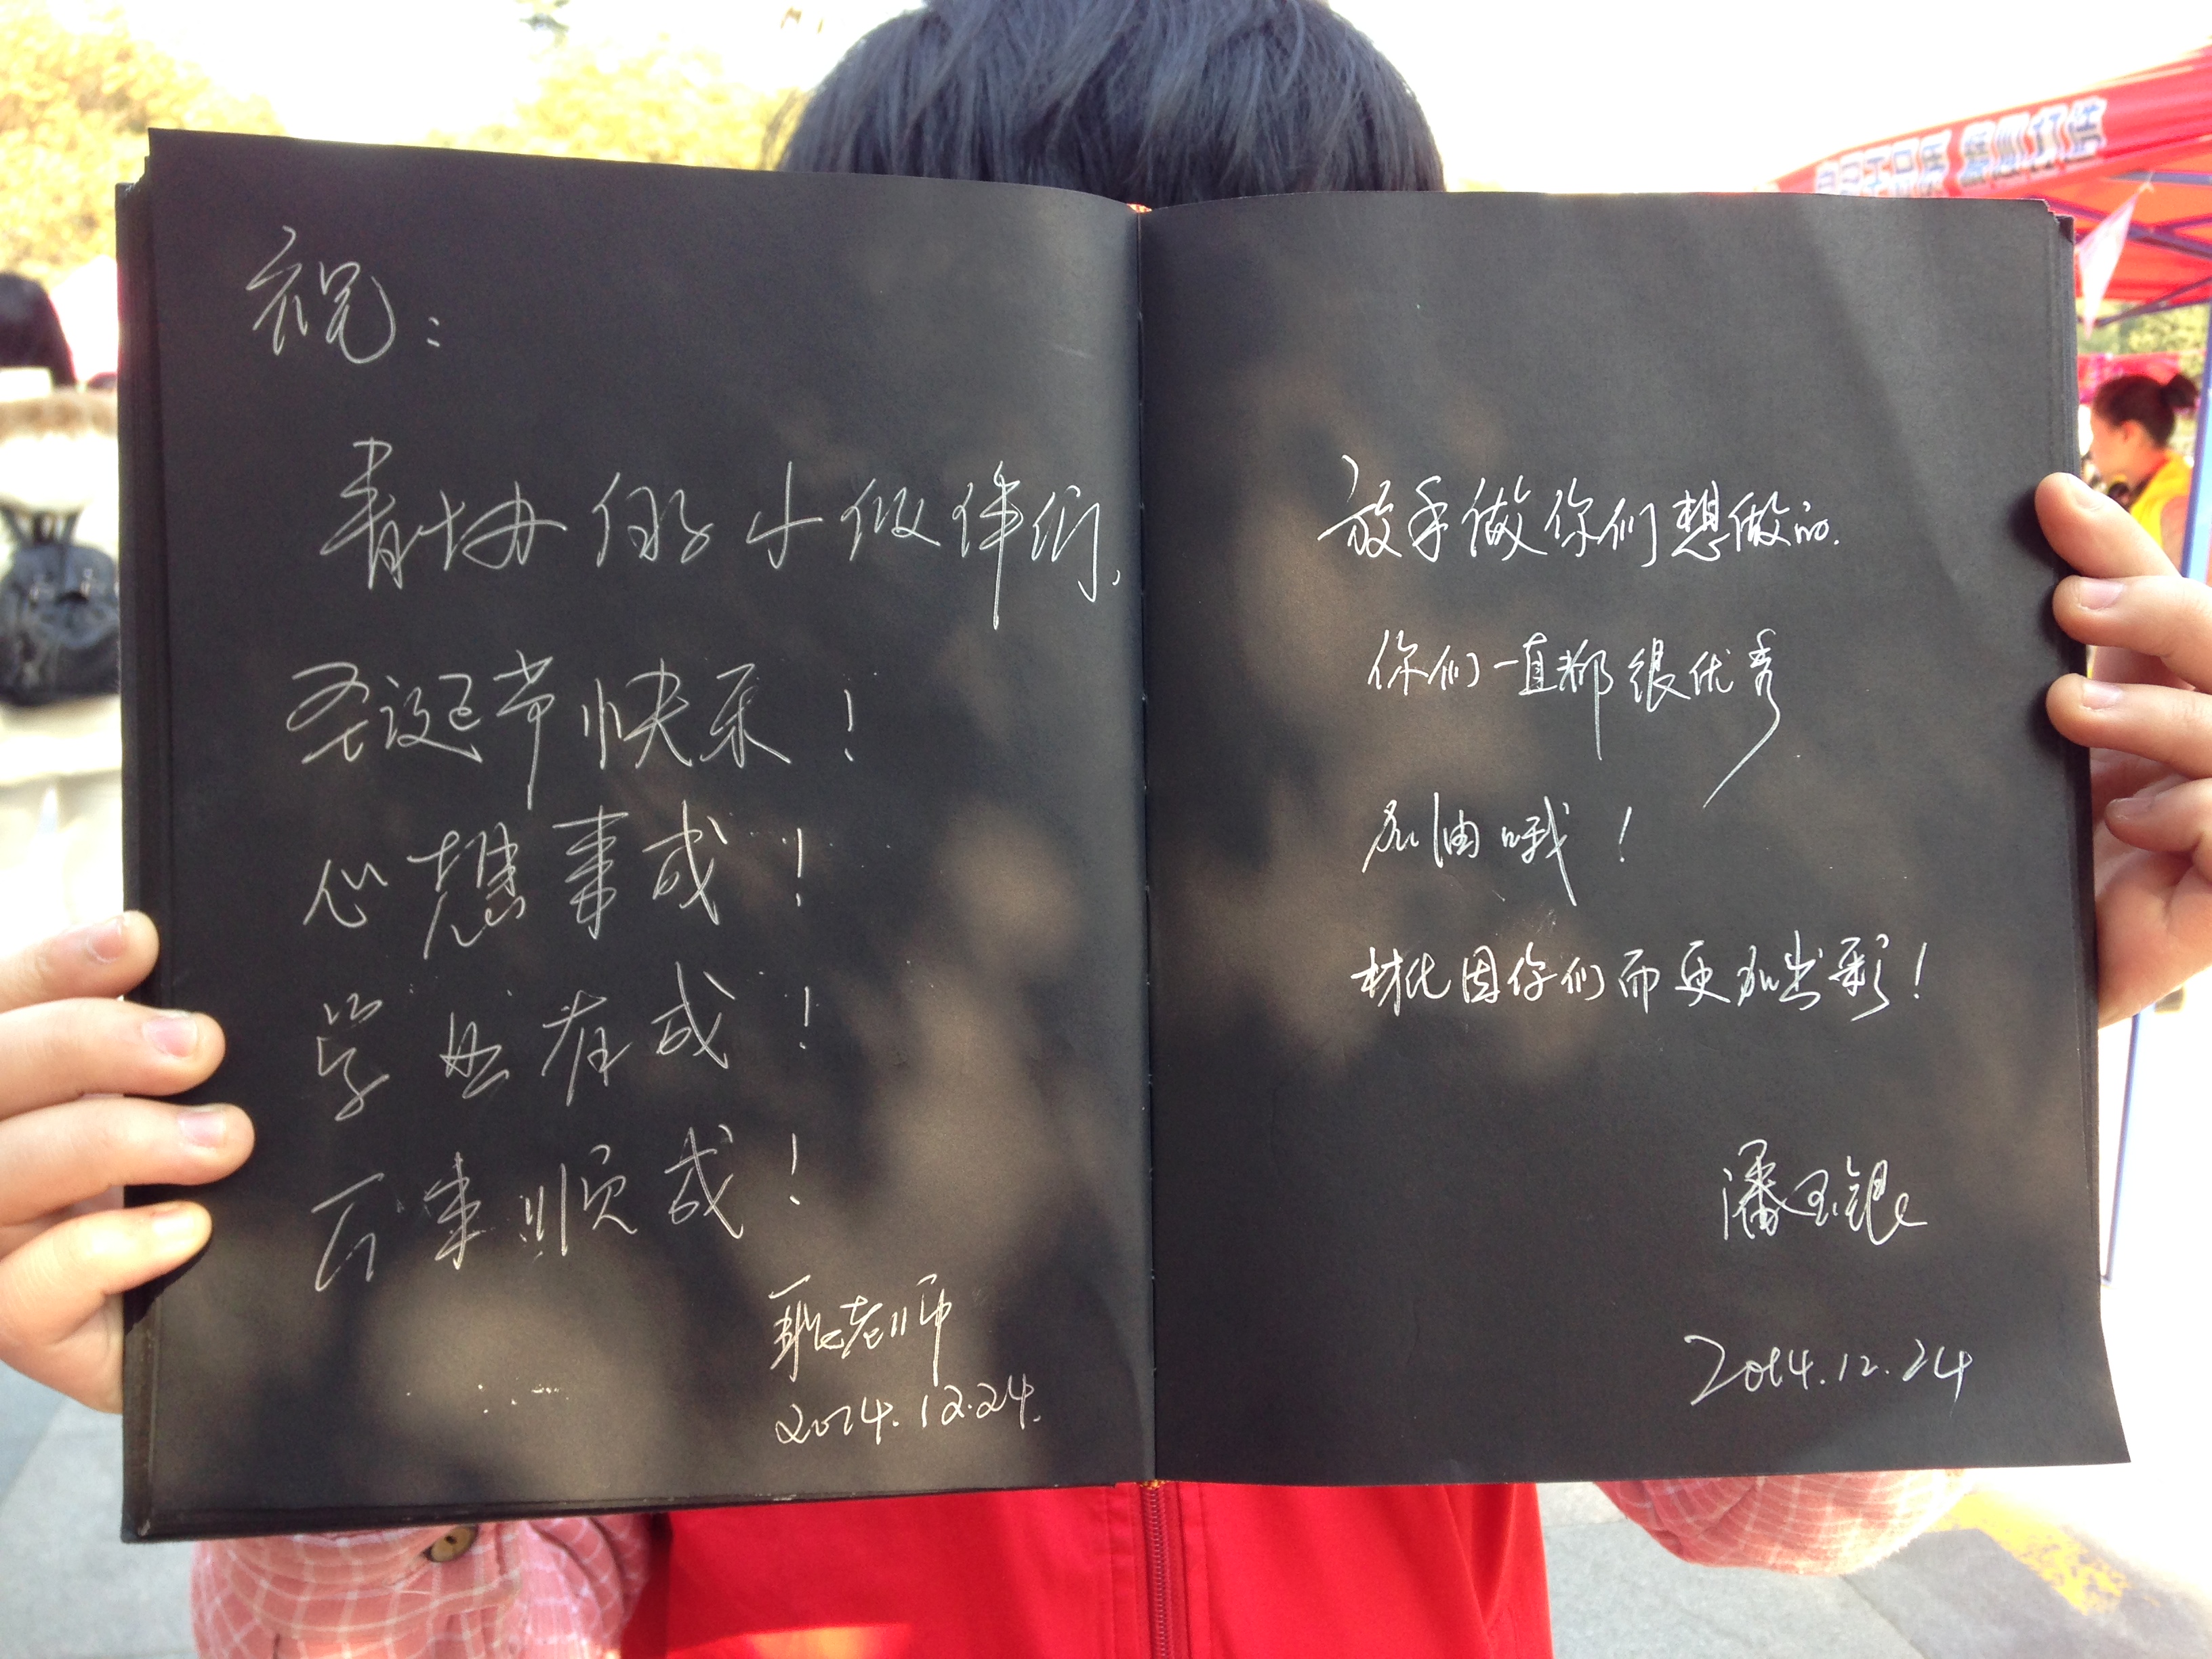 祝:
青协的小伙伴们,
圣诞节快乐!
心想事成!
学业有成!
万事顺成!
老师
2014.12.24.
放手做你们想做的.
你们一直都很优秀
加油哦!
材化因你们而更加出彩!
潘玉银
2014.12.24